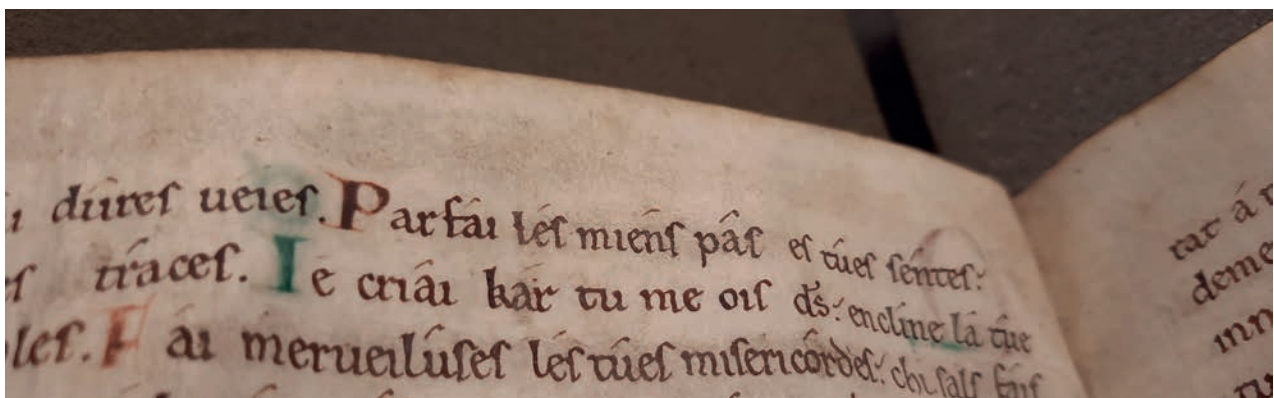 dures ueies. Parfái lés miens pâs es túes séntes:
es traces. Ie criâi kár tu me ois d̄s: encline lá tûe
les. Fái merueilúses lés túes misericórdes: chi sals fais
rat á
deme